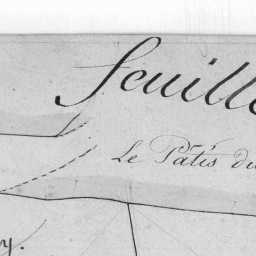 feuille
Le Pâtis du
y.